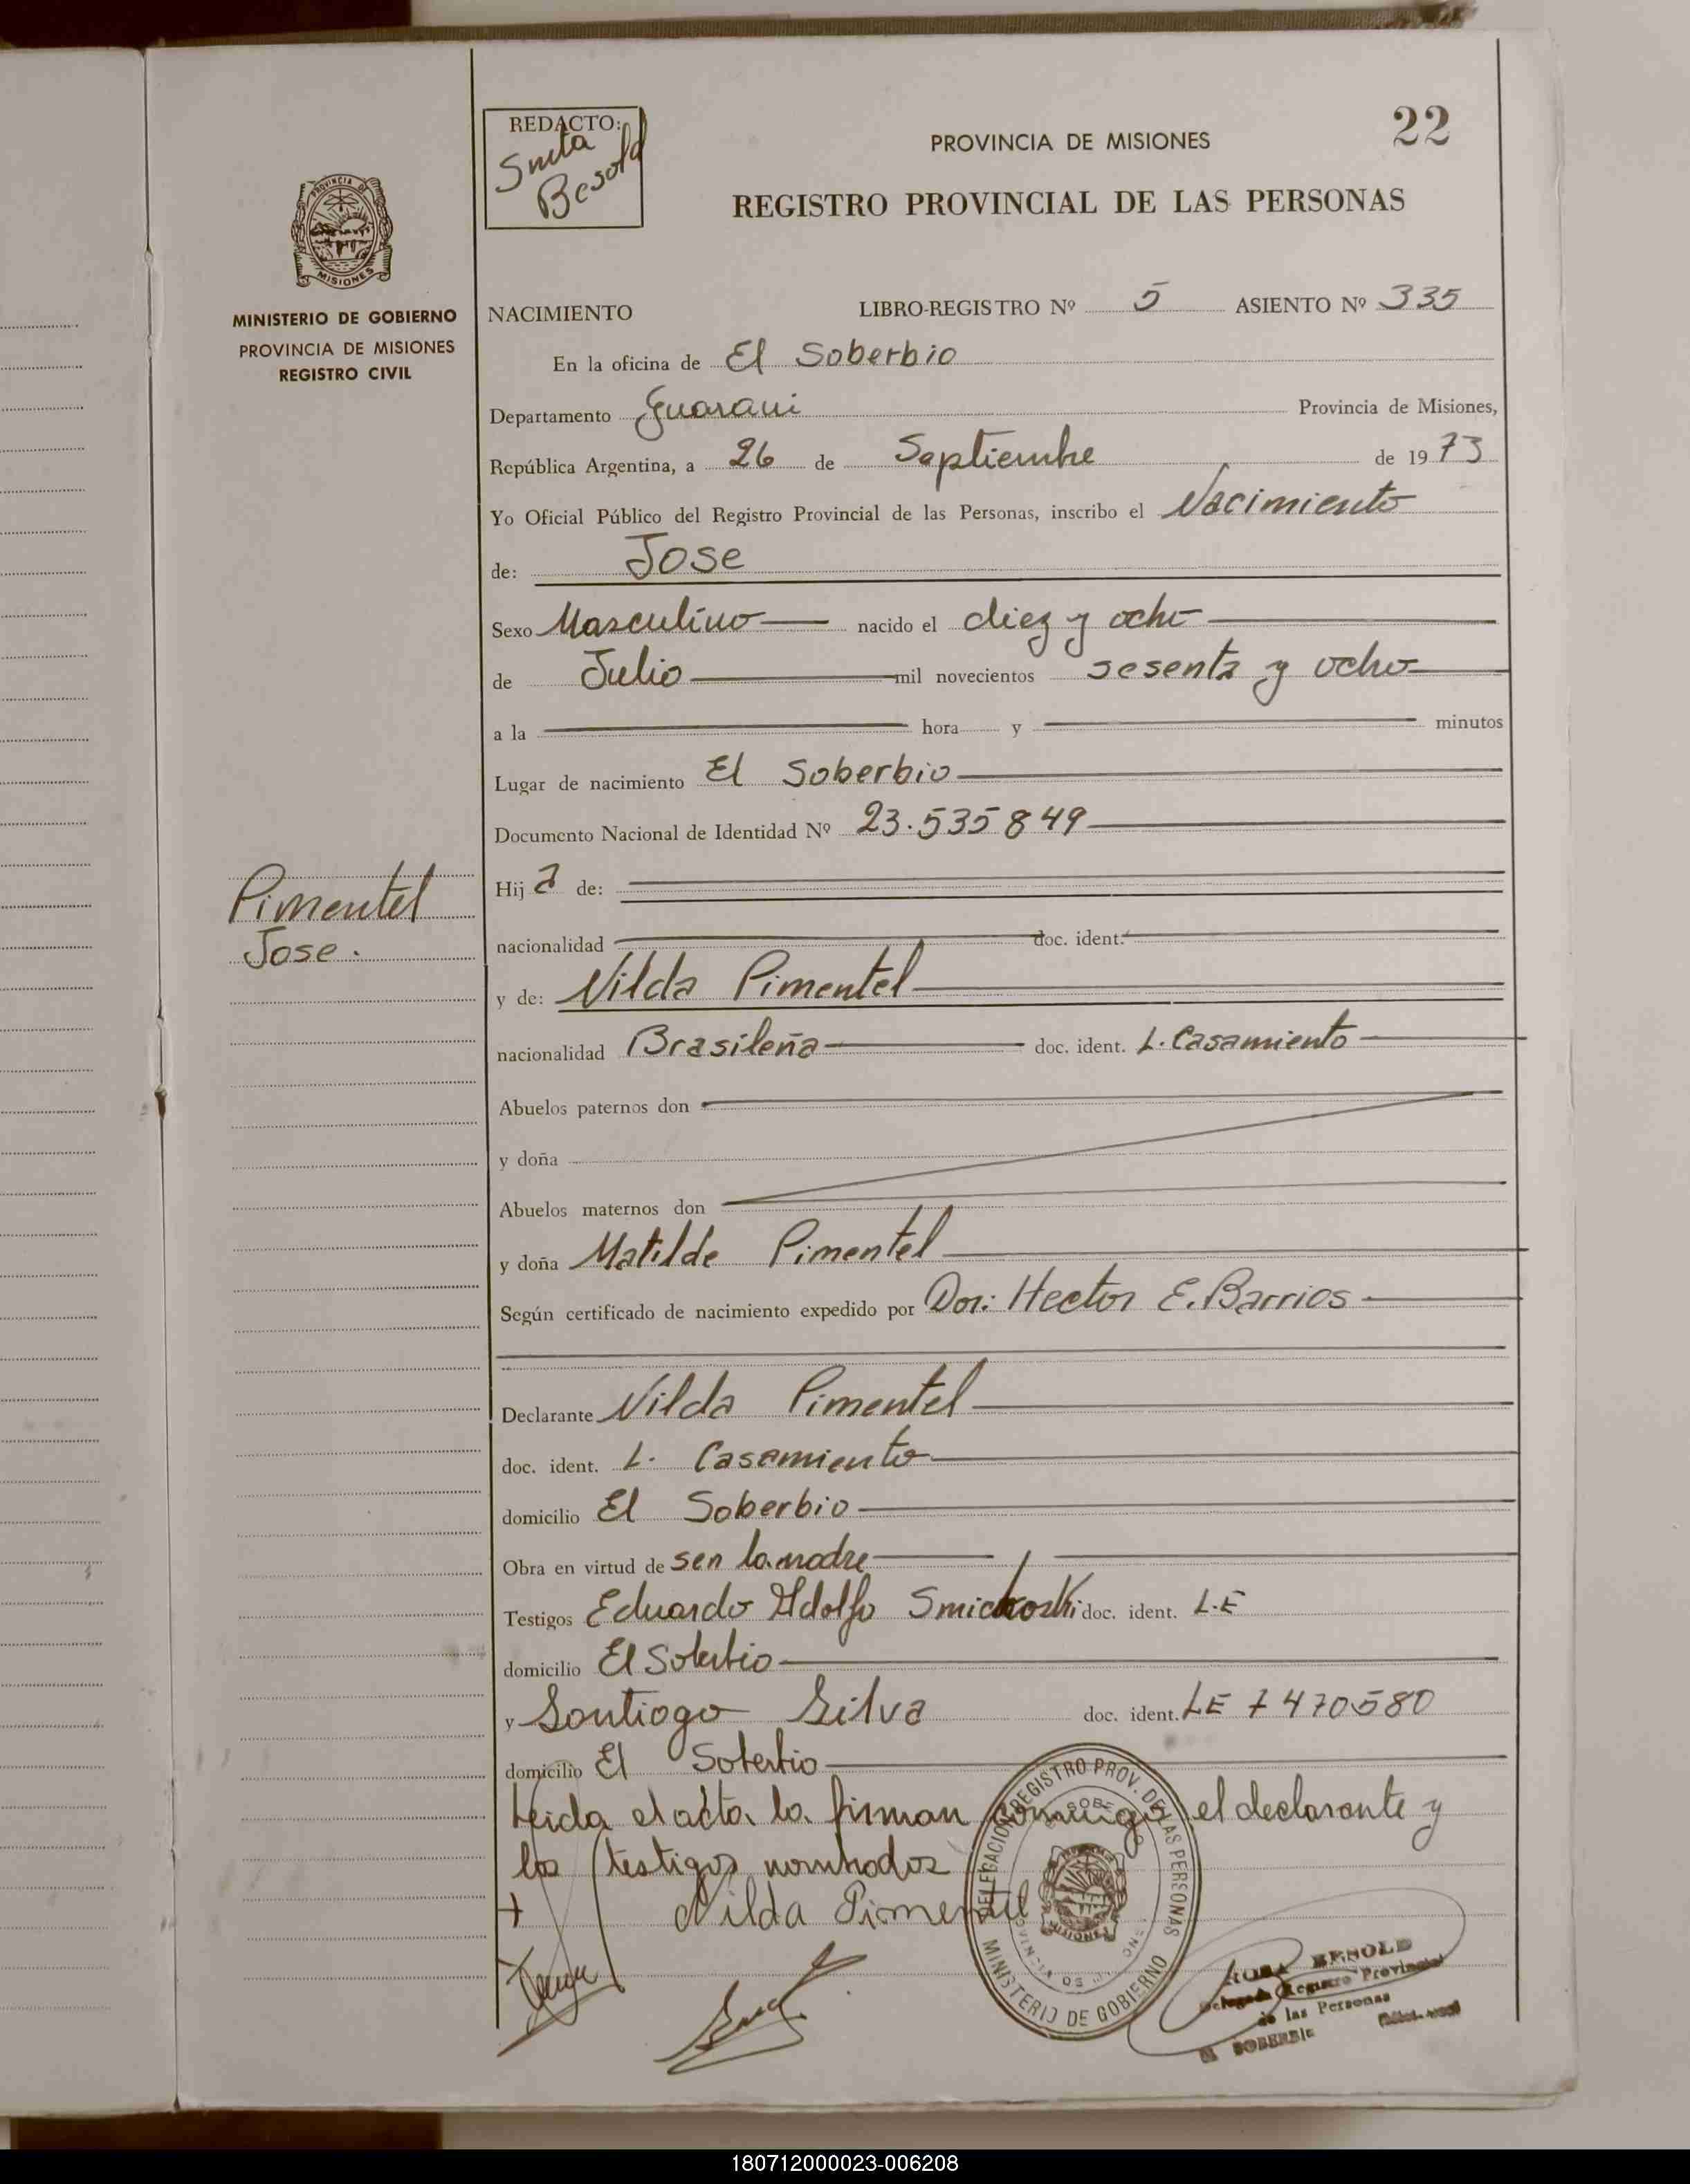 22
REDACTO:
Smta
Besold
PROVINCIA DE MISIONES
REGISTRO PROVINCIAL DE LAS PERSONAS
PROVINCIA DE
MISIONES
MINISTERIO DE GOBIERNO
PROVINCIA DE MISIONES
REGISTRO CIVIL
NACIMIENTO LIBRO-REGISTRO Nº 5 ASIENTO Nº 335
En la oficina de El Soberbio
Departamento Guarani Provincia de Misiones,
República Argentina, a 26 de Septiembre de 1973
Yo Oficial Público del Registro Provincial de las Personas, inscribo el Nacimiento
de: Jose
Sexo Masculino nacido el diez y ocho
de Julio mil novecientos sesenta y ocho
a la hora y minutos
Lugar de nacimiento El Soberbio
Documento Nacional de Identidad Nº 23.535849
Pimentel
Jose.
Hij a de:
nacionalidad doc. ident.
y de: Nilda Pimentel
nacionalidad Brasileña doc. ident. L. Casamiento
Abuelos paternos don
y doña
Abuelos maternos don
y doña Matilde Pimentel
Según certificado de nacimiento expedido por Don: Hector E. Barrios
Declarante Nilda Pimentel
doc. ident. L. Casamiento
domicilio El Soberbio
Obra en virtud de ser la madre
Testigos Eduardo Adolfo doc. ident. L.E
domicilio El Soberbio
y Santiago Silva doc. ident. LE 7470580
domicilio El Soberbio
Leida el acta la firman conmigo el declarante y
los testigos nombrados
Nilda Pimentel
DELEGACION REGISTRO PROV. DE LAS PERSONAS
MINISTERIO DE GOBIERNO
BESOLD
Delegada Registro Provincial
de las Personas
SOBERBIO
180712000023-006208